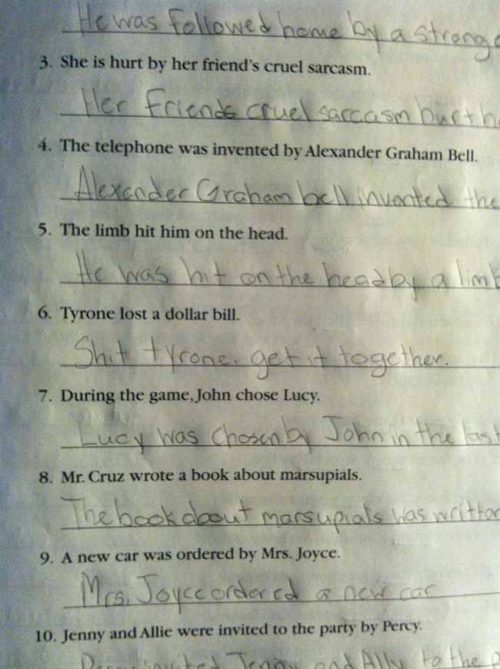 He was followed home by a strange
3. She is hurt by her friend's cruel sarcasm.
Her Friends cruel sarcasm hurt h
4. The telephone was invented by Alexander Graham Bell.
Alexander Graham bell invented the
5. The limb hit him on the head.
He was hit on the head by a limb
6. Tyrone lost a dollar bill.
Shit tyrone. get it together.
7. During the game, John chose Lucy.
Lucy was chosen by John in the last
8. Mr. Cruz wrote a book about marsupials.
The book about marsupials was writton
9. A new car was ordered by Mrs. Joyce.
Mrs. Joyce ordered a new car
10. Jenny and Allie were invited to the party by Percy.
Percy invited Jenny and Ally to the p